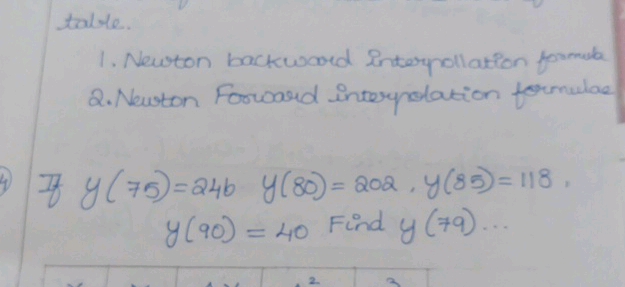 table.
1. Newton backward Interpollation formula
2. Newton Forward interpolation formulae
4) If y(75)=246 y(80)=202, y(85)=118,
y(90)=40 Find y(79)...